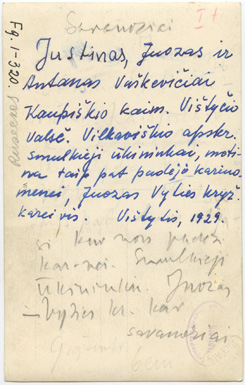 Savanoriai
Fg. 1-320,
Justinas, Juozas ir
Antanas Vaškevičiai
Kaupiškio kaim. Vištyčio
Valsč. Vilkaviškio apskr.
Smulkieji ūkininkai, moti-
na taip pat padėjo kariuo-
menei, Juozas Vyties kryž.
kareivis. Vištytis, 1929.
kur nors
Smulkieji
Ūkininkai. Juozas
– Vyties kr. kar
savanoriai